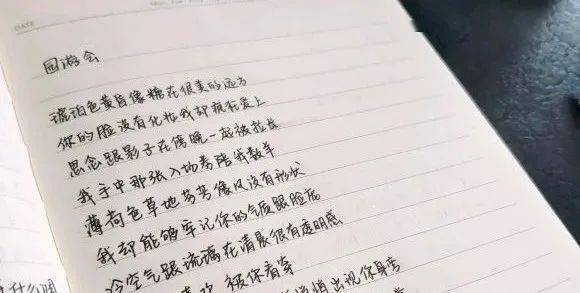 DATE
园游会
琥珀色黄昏像糖在很美的远方
你的脸没有化妆我却疯狂爱上
思念跟影子在傍晚一起被拉长
我手中那张入场券陪我数羊
薄荷色草地芬芳像风没有形状
我却能够牢记你的气质跟脸庞
冷空气跟琉璃在清晨很有透明感
喜欢 被你看穿
悄悄出现你身旁
什么